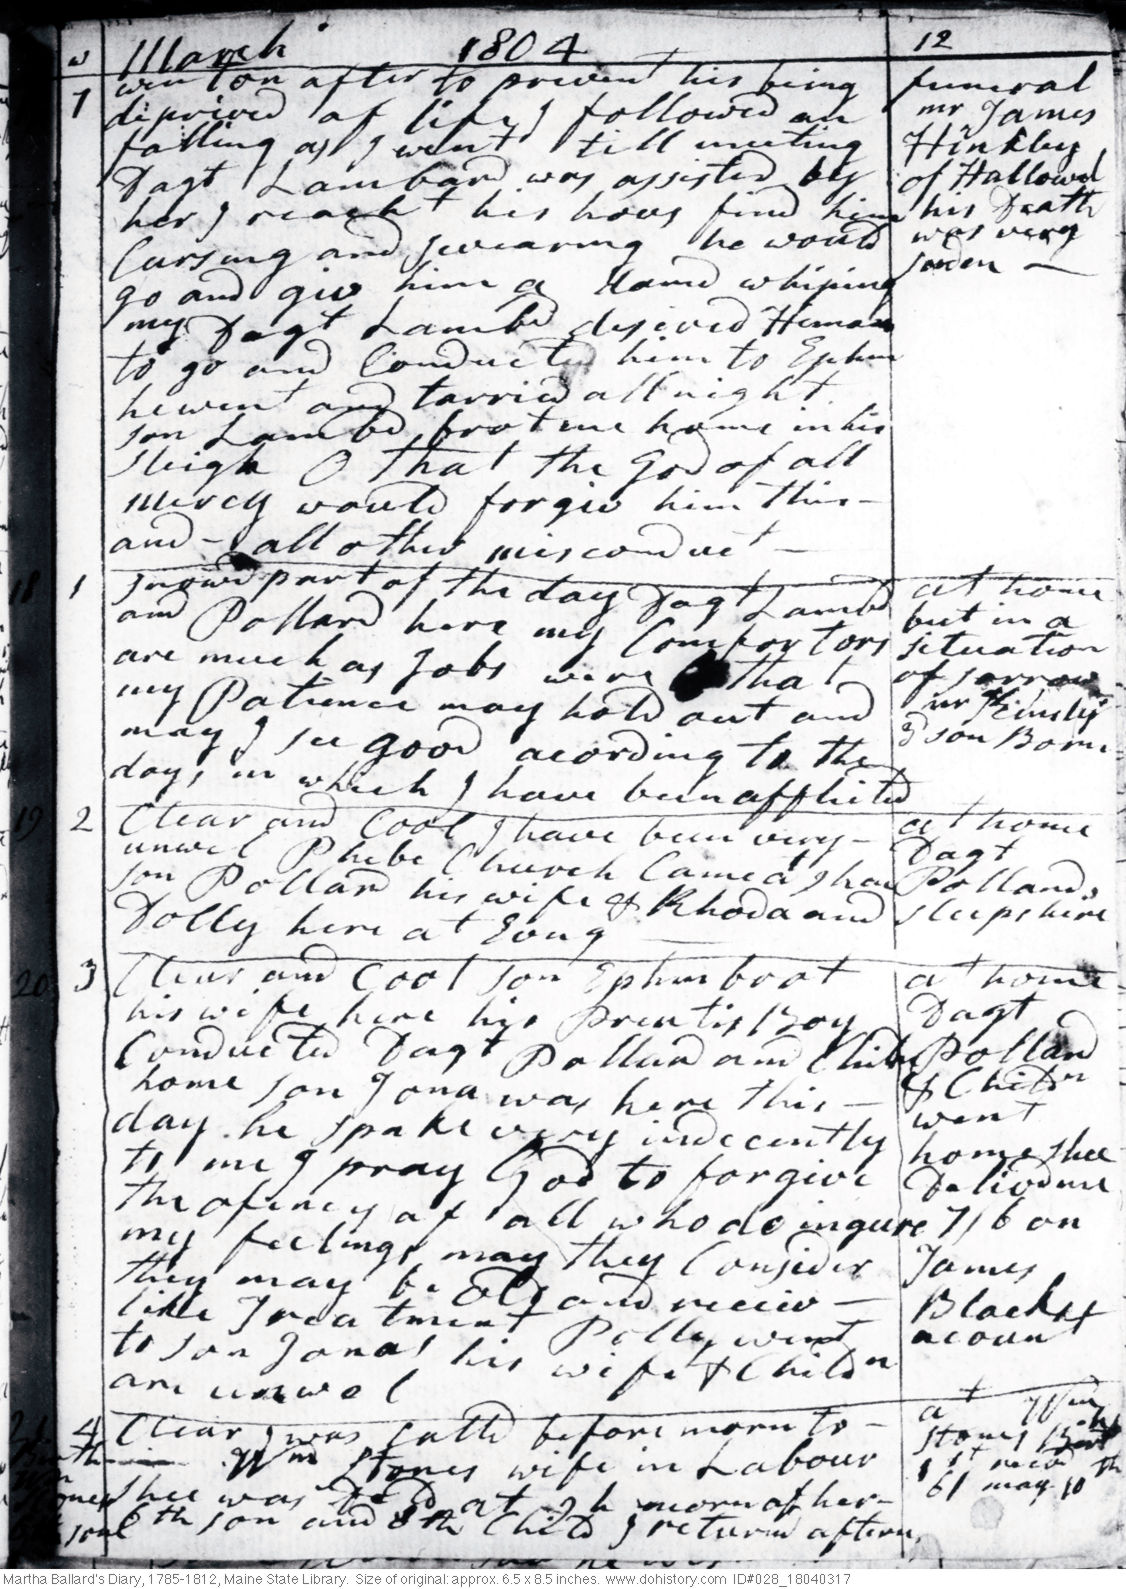 w March 1804 12
7 went on after to prevent his being
deprived of life, I followed on
falling as I went till meeting
Dagt Lambard was assisted by
her I reacht his hous find him
Cursing and swearing he would
go and giv him a Damd whiping
my Dagt Lambd desired Heman
to go and Conducted him to Ephm
he went and tarried all night
son Lambd brot me home in his
sleigh O that the God of all
mercy would forgiv him this
and all other misconduct
funeral
mr James
Hinkley
of Hallowel
his Death
was very
suden
18 1 snowd part of the day Dagt Lambd
and Pollard here my Comfortors
are much as Jobs were that
my Patience may hold out and
may I see good acording to the
days in which I have been afflicted
at home
but in a
situation
of sorrow
mr Kinsly
3d son Born
19 2 Clear and Cool I have been very
unwel Phebe Church Came
son Pollard his wife & Rhoda and
Dolly here at Evng
at home
Dagt
Pollard
sleeps here
20 3 Clear and Cool son Ephm brot
his wife here his Prentis Boy
Conducted Dagt Pollard and Childn
home son Jona was here this
day he spake very indecently
to me I pray God to forgive
the ofencis of all who do ingure
my feelings may they Consider
they may be old and receiv
like Treatment Polly went
to son Jonas his wife & Childn
are unwel
at home
Dagt
Pollard
& Childn
went
home shee
Delivd me
7/6 on
James
Black
acount
21 4 Clear I was Calld before morn to
Wm Stones wife in Labour
shee was at 2 h morn of her
6th son and 8th Child I returnd aftern
at Wm
Stones Birth
1st recd
6/ may 10th
Birth
Wm
Stones
6th son
Martha Ballard's Diary, 1785-1812, Maine State Library. Size of original: approx. 6.5 x 8.5 inches. www.dohistory.com ID#028_18040317